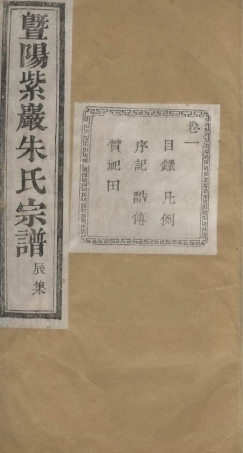 暨陽紫巖朱氏宗譜 辰集
卷一
目錄 凡例
序記 誥傳
贊祀田